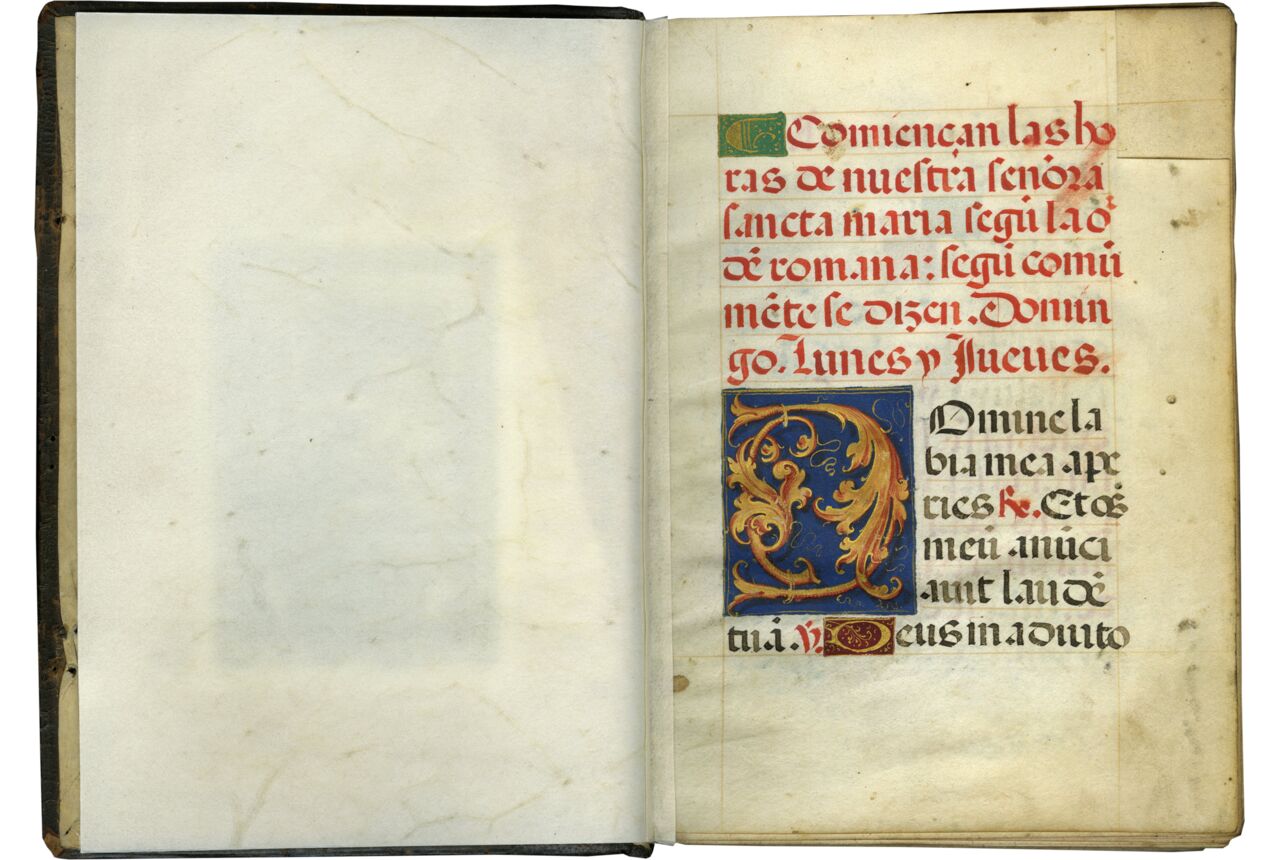 Comiençan las ho
ras de nuestra señora
sancta maria segũ la oꝛ
dẽ romana: segũ comũ
mẽte se dizen. Domin
go. Lunes y Jueues.
Domine la
bia mea ape
ries ℟. Et os
meũ anũci
auit laudẽ
tuã. ℣. Deus in adiuto